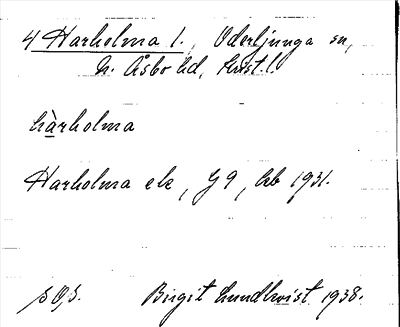 4 Harholma 1., Oderljunga sn,
N. Åsbo hd, Krist. l.
hàrholma
Harholma ek, G 9, kb 1931.
Birgit Lundkvist 1938.